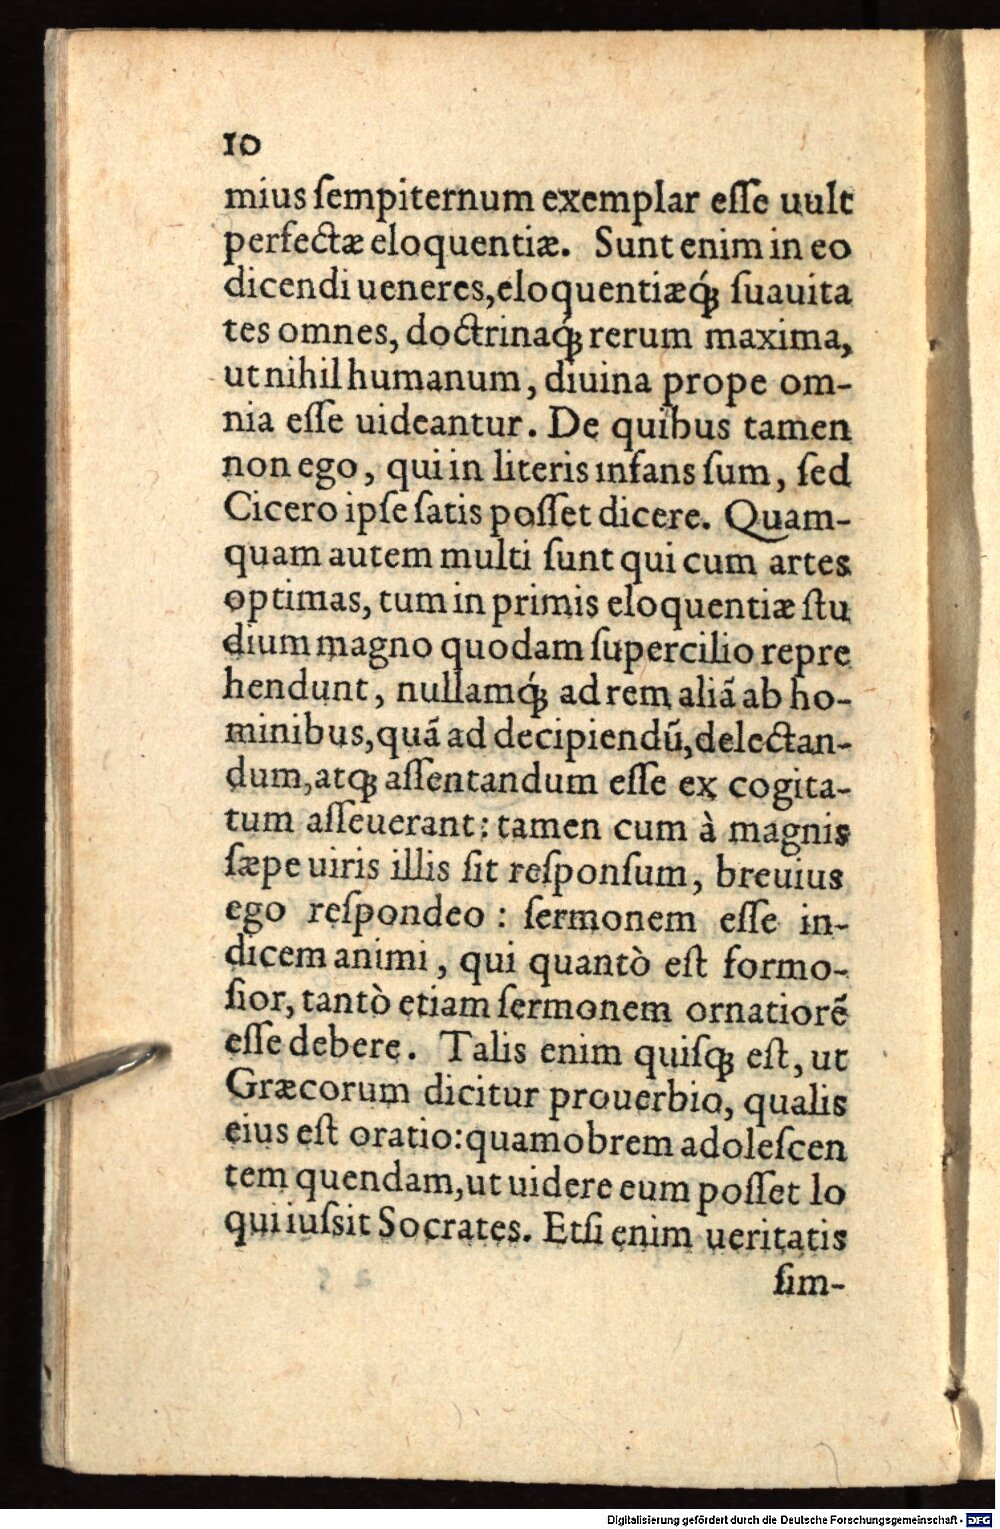 10
mius ſempiternum exemplar eſſe uult
perfectæ eloquentiæ. Sunt enim in eo
dicendi ueneres, eloquentiæq́ꝫ ſuauita
tes omnes, doctrinaq́ꝫ rerum maxima,
ut nihil humanum, diuina prope om-
nia eſſe uideantur. De quibus tamen
non ego, qui in literis infans ſum, ſed
Cicero ipſe ſatis poſſet dicere. Quam-
quam autem multi ſunt qui cum artes
optimas, tum in primis eloquentiæ ſtu
dium magno quodam ſupercilio repre
hendunt, nullamq́ꝫ ad rem aliā ab ho-
minibus, quā ad decipiendū, delectan-
dum, atqꝫ aſſentandum eſſe ex cogita-
tum aſſeuerant: tamen cum à magnis
ſæpe uiris illis ſit reſponſum, breuius
ego reſpondeo : ſermonem eſſe in-
dicem animi, qui quantò eſt formo-
ſior, tantò etiam ſermonem ornatiorē
eſſe debere. Talis enim quiſqꝫ eſt, ut
Græcorum dicitur prouerbio, qualis
eius eſt oratio: quamobrem adoleſcen
tem quendam, ut uidere eum poſſet lo
qui iuſsit Socrates. Etſi enim ueritatis
ſim-
Digitalisierung gefördert durch die Deutsche Forschungsgemeinschaft - DFG